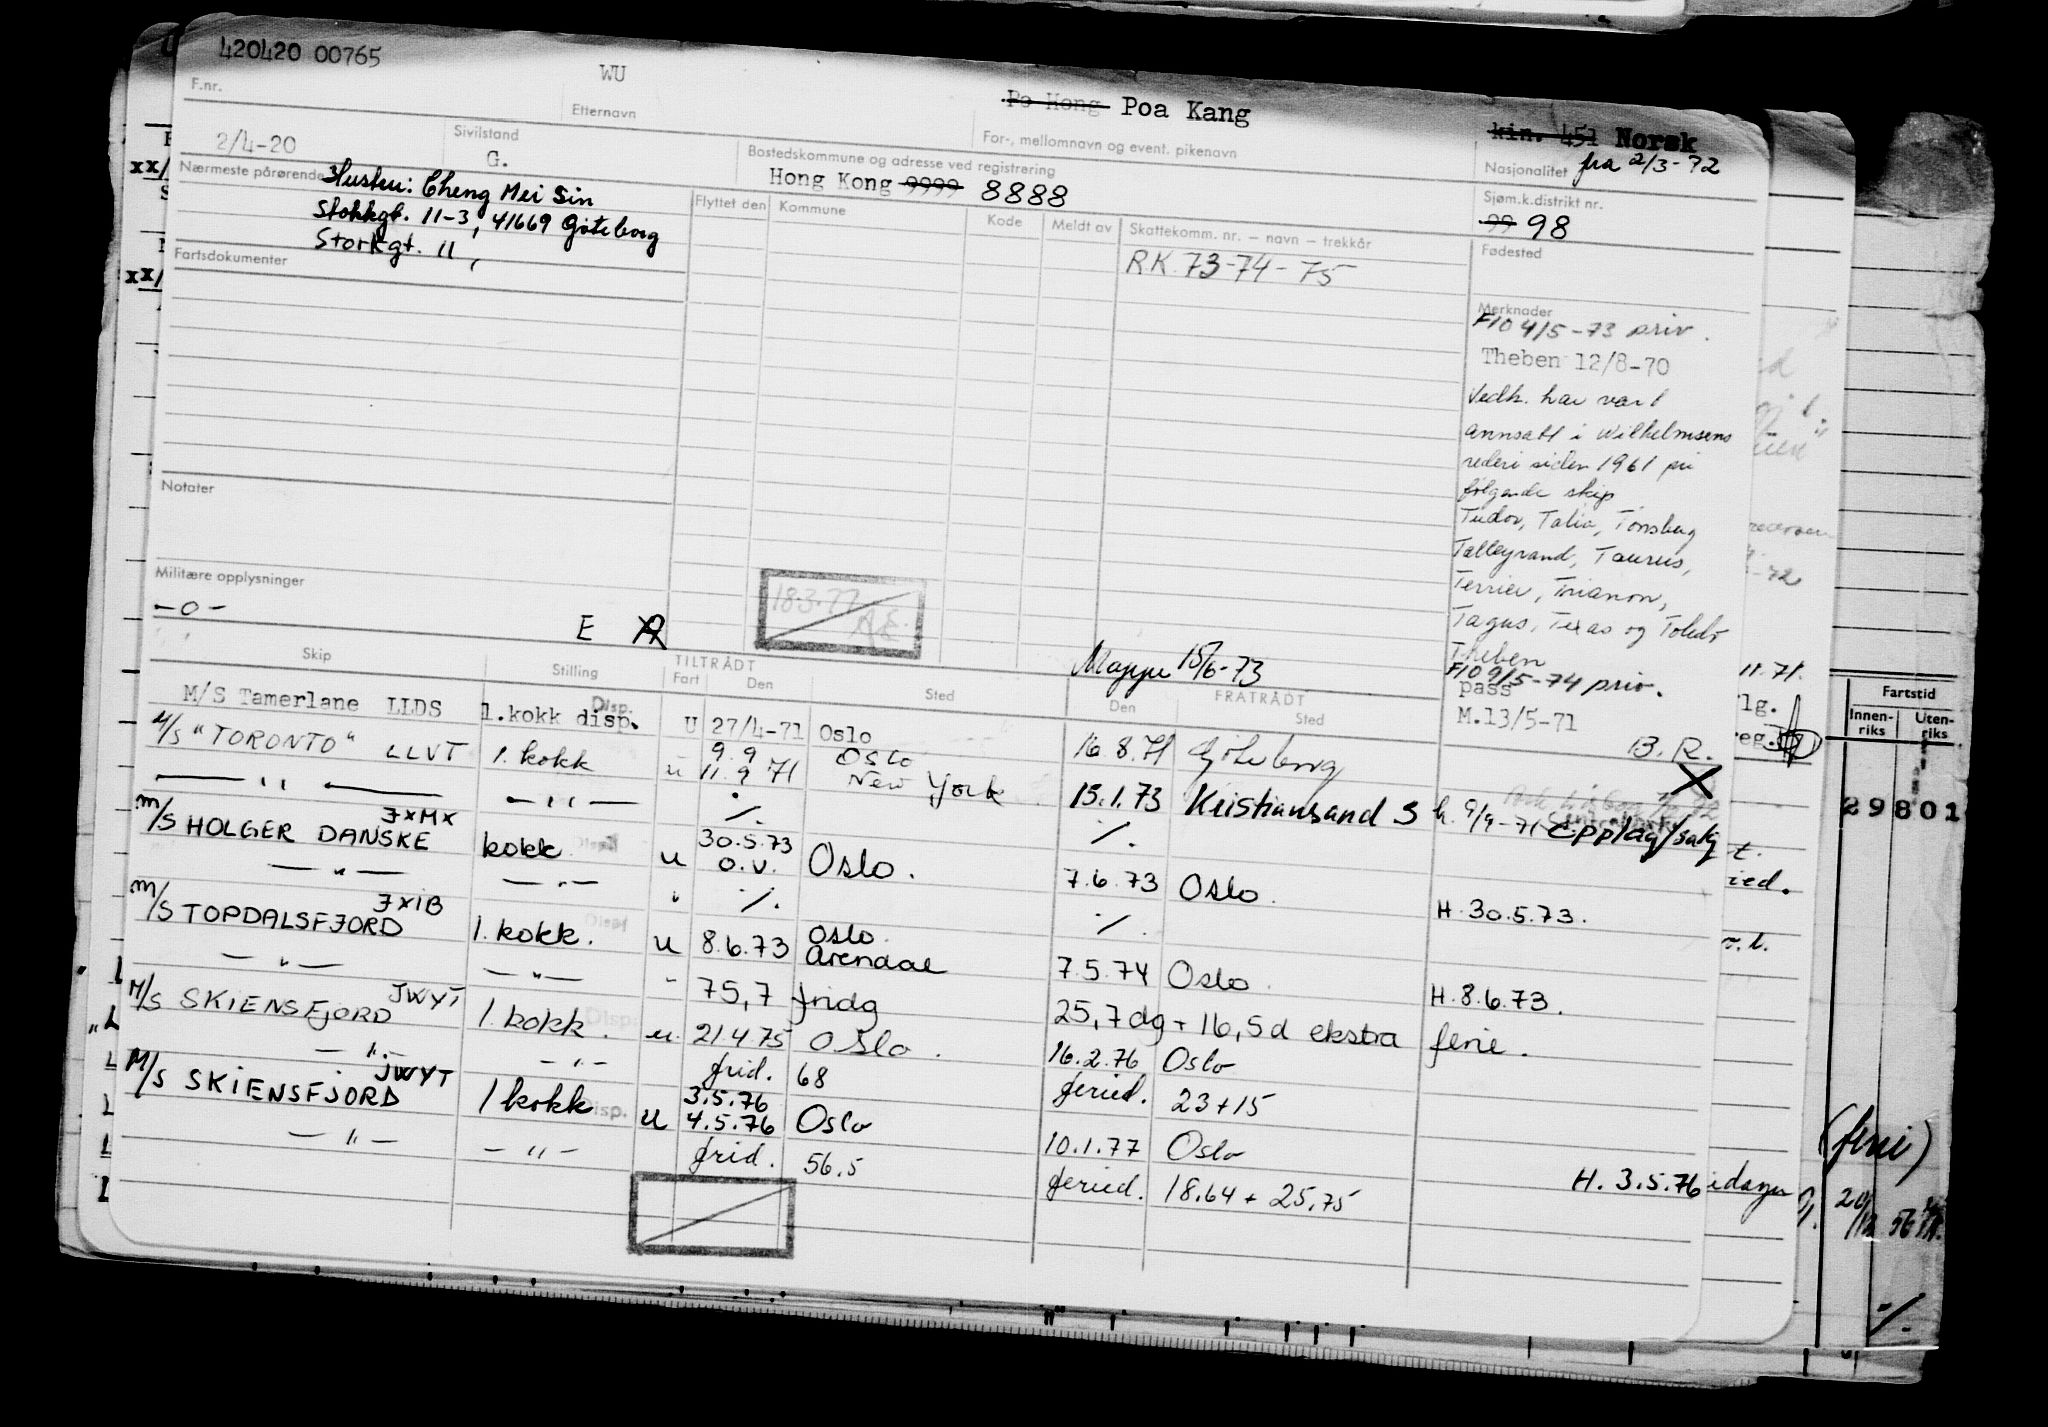 420420 00765
WU
Po Hong Poa Kang
kin. 451 Norsk
F.nr.
Etternavn
For-, mellomnavn og event. pikenavn
Nasjonalitet fra 2/3-72
2/4-20
Sivilstand
G.
Bostedskommune og adresse ved registrering
Hong Kong 9999 8888
Sjøm.k.distrikt nr.
99 98
Nærmeste pårørende
Hustru: Cheng Mei Sin
Stokkgt. 11-3, 41669 Göteborg
Storkgt. 11,
Flyttet den
Kommune
Kode
Meldt av
Skattekomm. nr. – navn – trekkår
RK. 73-74-75
Fødested
Fartsdokumenter
Merknader
F10 4/5-73 priv.
Theben 12/8-70
Vedk. har vært
annsatt i Wilhelmsens
rederi siden 1961 på
følgende skip
Tudor, Talia, Tønsberg
Talleyrand, Taurus,
Terrier, Trianon,
Tagus, Texas og Toledo
Theben
F10 9/5-74 priv.
pass
M.13/5-71
B.R.
Notater
Militære opplysninger
-0-
E
18.3.77
A.E.
Mappe 15/6-73
Skip
Stilling
TILTRÅDT
Fart
Den
Sted
FRATRÅDT
Den
Sted
M/S Tamerlane LLDS 1.kokk disp. Disp. U 27/4-71 Oslo 16.8.71 Göteborg
M/S "TORONTO" LLVT 1. kokk u 9.9 11.9 71 Oslo New York 15.1.73 Kristiansand S h. 9/9-71 Opplag/salg
— " — — " — ./. ./.
M/S HOLGER DANSKE JXMX kokk u 30.5.73 o.v. Oslo. 7.6.73 Oslo. H. 30.5.73.
— " — — " — " ./. ./.
M/S TOPDALSFJORD JXIB 1. kokk. u 8.6.73 Oslo. Arendal 7.5.74 Oslo. H. 8.6.73.
— " — — " — - 75,7 fridg 25,7 dg + 16,5 d ekstra ferie.
M/S SKIENSFJORD JWYT 1. kokk. Disp. u. 21.4.75 Oslo. 16.2.76 Oslo
— " — — " — frid. 68 feried. 23+15
M/S SKIENSFJORD JWYT 1 kokk Disp. u 3.5.76 4.5.76 Oslo 10.1.77 Oslo H. 3.5.76
— " — — " — frid. 56.5 feried. 18.64 + 25,75
idager
11.71.
lg.
reg.
-72
Fartstid
Innen-
riks
Uten-
riks
29801
(ferie)
./.